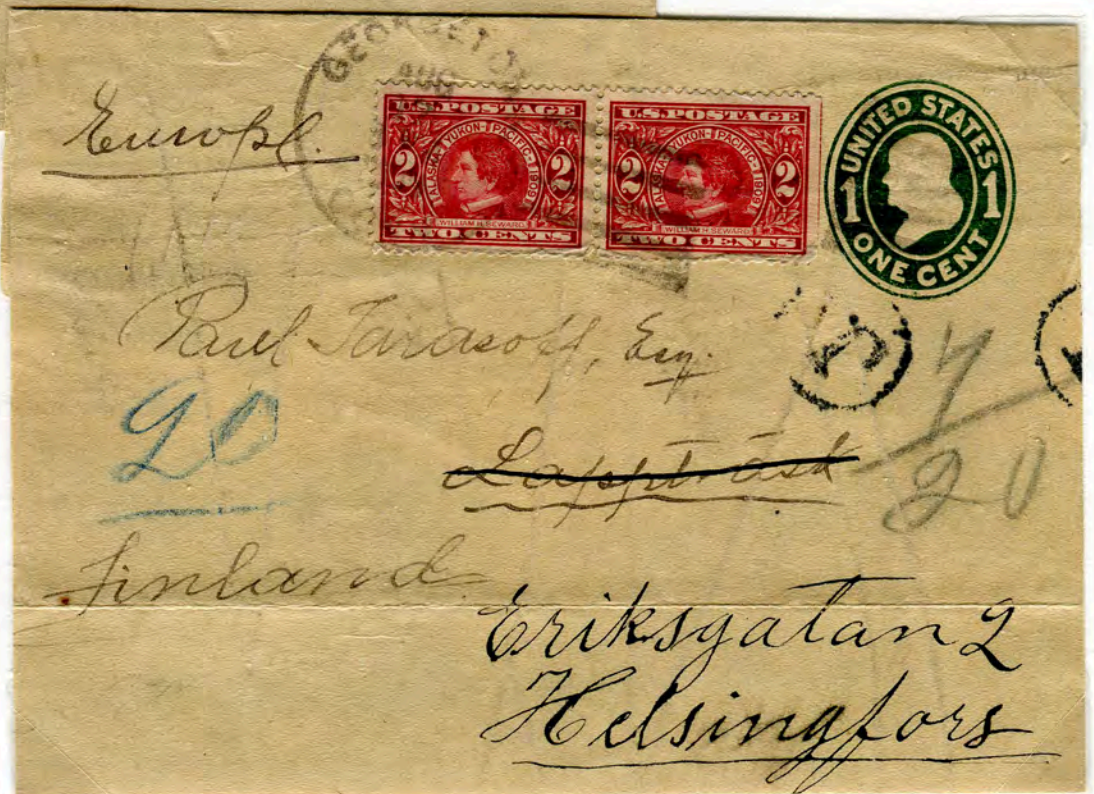 GEORGETO
AUG
Europe.
U.S.POSTAGE
ALASKA-YUKON-PACIFIC-1909
2 2
WILLIAM H. SEWARD
TWO CENTS
U.S.POSTAGE
ALASKA-YUKON-PACIFIC-1909
2 2
WILLIAM H. SEWARD
TWO CENTS
UNITED STATES
1 1
ONE CENT
Paul Tarasoff, Esq.
20
Lappträsk
4
20
Finland
Eriksgatan 2
Helsingfors